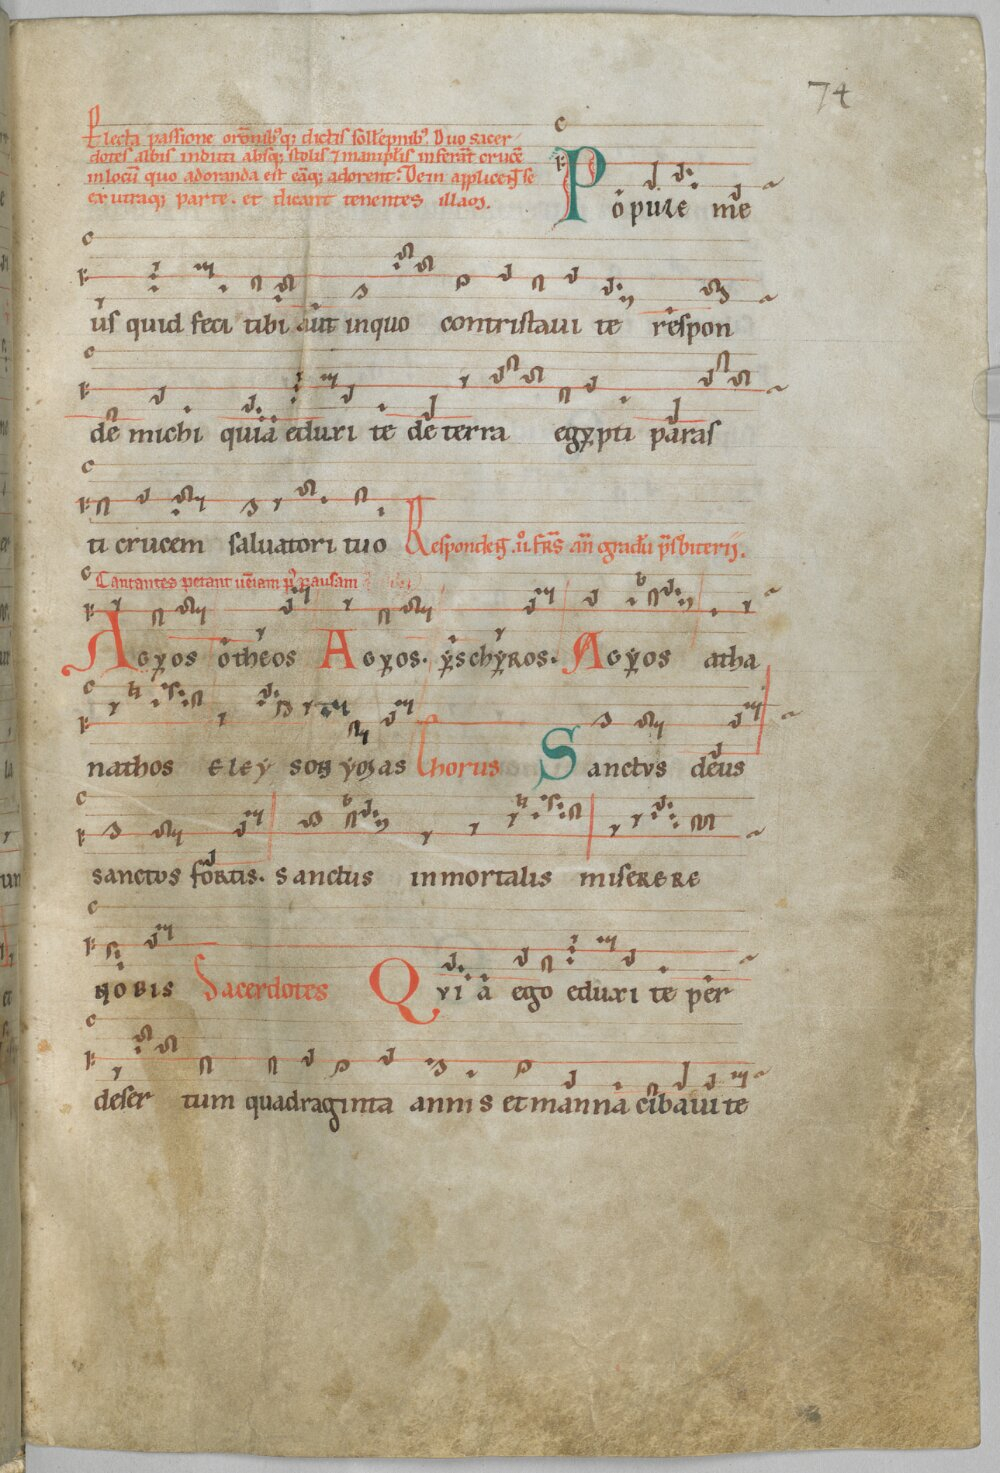 74
Plecta passione oronibꝫ qꝫ dictis sollepnibꝫ. Duo sacer
dotes albis induti absqꝫ stolis ⁊ manıplis inferāt crucē
in locū quo adoranda est eāqꝫ adorent. Dein applicent se
ex utraqꝫ parte. et dicant tenentes illam.
Popule me
us quid feci tibi aut inquo contristaui te respon
de michi quia eduxi te de terra egypti paras
ti crucem saluatori tuo Respondent
Cantantes petant ueniam
Agyos otheos Agyos. yschyros. Agyos atha
nathos eley son ymas Chorus Sanctus deus
sanctus fortis. Sanctus inmortalis miserere
nobis Sacerdotes Quia ego eduxi te per
deser tum quadraginta annis et manna cibaui te